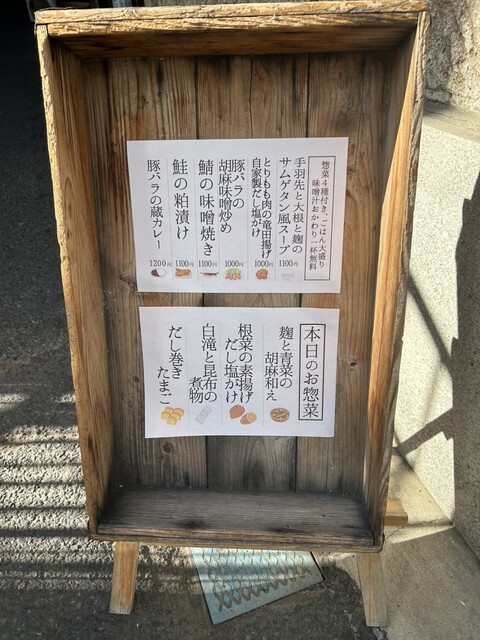 惣菜4種付き、ごはん大盛り
味噌汁おかわり一杯無料
手羽先と大根と麹の
サムゲタン風スープ
1100円
とりもも肉の竜田揚げ
自家製だし塩がけ
1000円
豚バラの
胡麻味噌炒め
1000円
鯖の味噌焼き
1100円
鮭の粕漬け
1100円
豚バラの蔵カレー
1200円
本日のお惣菜
麹と青菜の
胡麻和え
根菜の素揚げ
だし塩がけ
白滝と昆布の
煮物
だし巻き
たまご